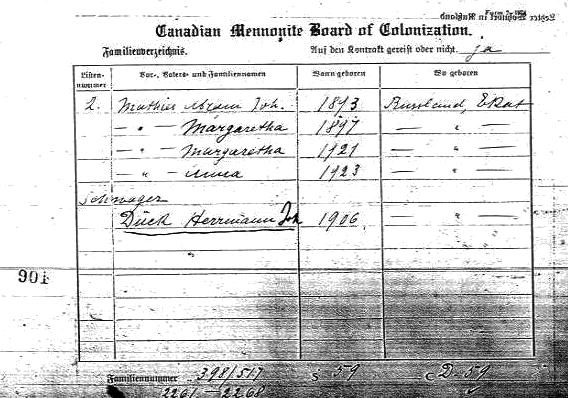 Form 7- 1924
Canadian Mennonite Board of Colonization.
Familienverzeichnis. Auf den Kontrakt gereist oder nicht. ja
Listen-nummer Vor-, Vaters- und Familiennamen Wann geboren Wo geboren
2. Mathies Abram Joh. 1893 Russland, Ekat
— " — Margaretha 1897 — " —
— " — Margaretha 1921 — " —
— " — Anna 1923 — " —
Schwager
Dück Herrmann Joh 1906. — " —
"
901
Familiennummer 398/517 s 59 D. 59
2261 – 2268